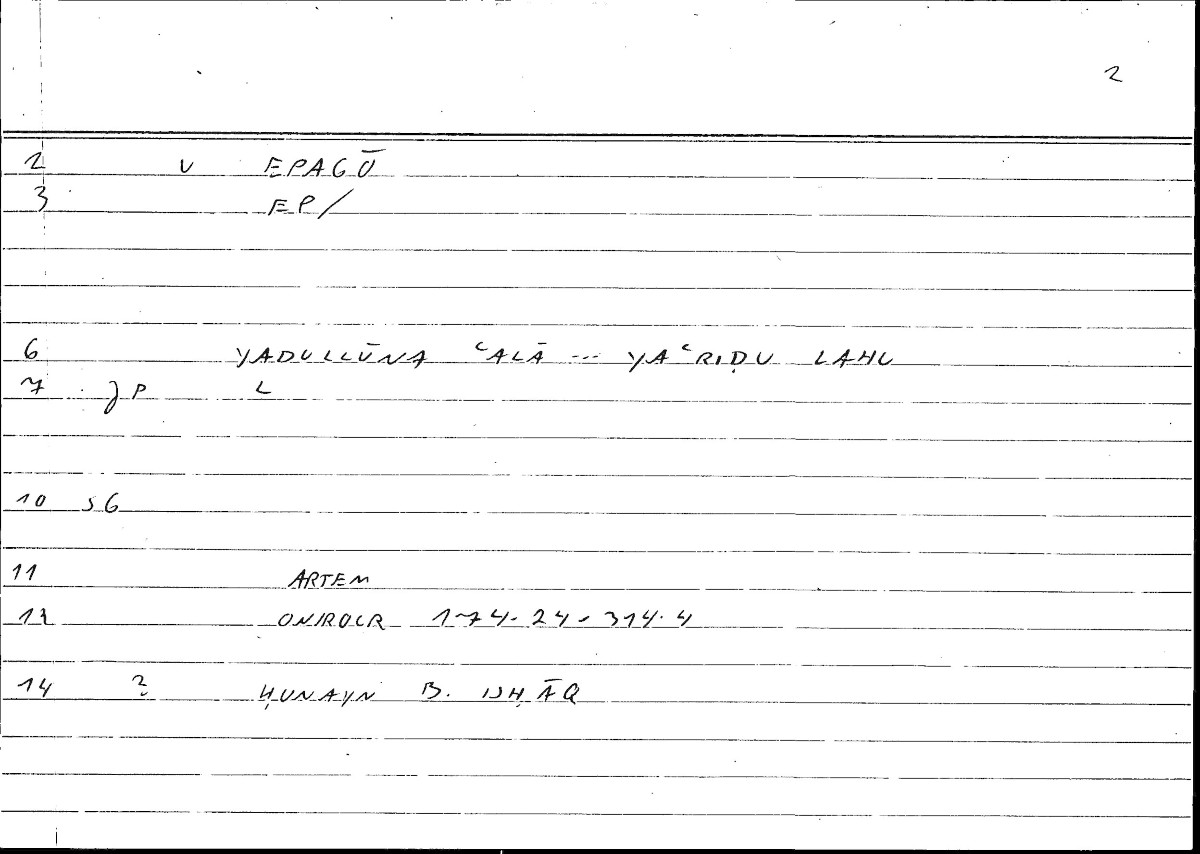 2
2 V EPAGŌ
3 EP/
6 YADULLŪNA ʿALĀ --- YAʿRIḌU LAHU
7 JP L
10 SG
11 ARTEM
12 ONIROCR 174.24 - 314.4
14 ? ḤUNAYN B. ISḤĀQ